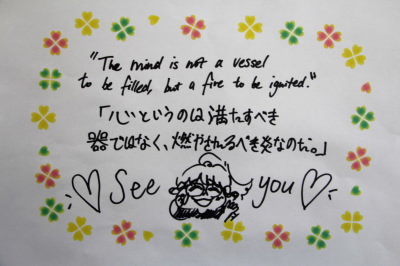 "The mind is not a vessel
to be filled, but a fire to be ignited."
「心というのは満たすべき
器ではなく、燃やされるべき炎なのだ。」
See you